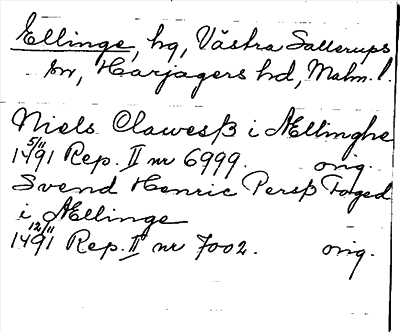 Ellinge, hg, Västra Sallerups
sn, Harjagers hd, Malm. l.
Niels Clawesß i Ællinghe
5/11 1491 Rep. II nr 6999. orig.
Svend Henric Persß Foged
i Ællinge
12/11 1491 Rep. II nr 7002. orig.